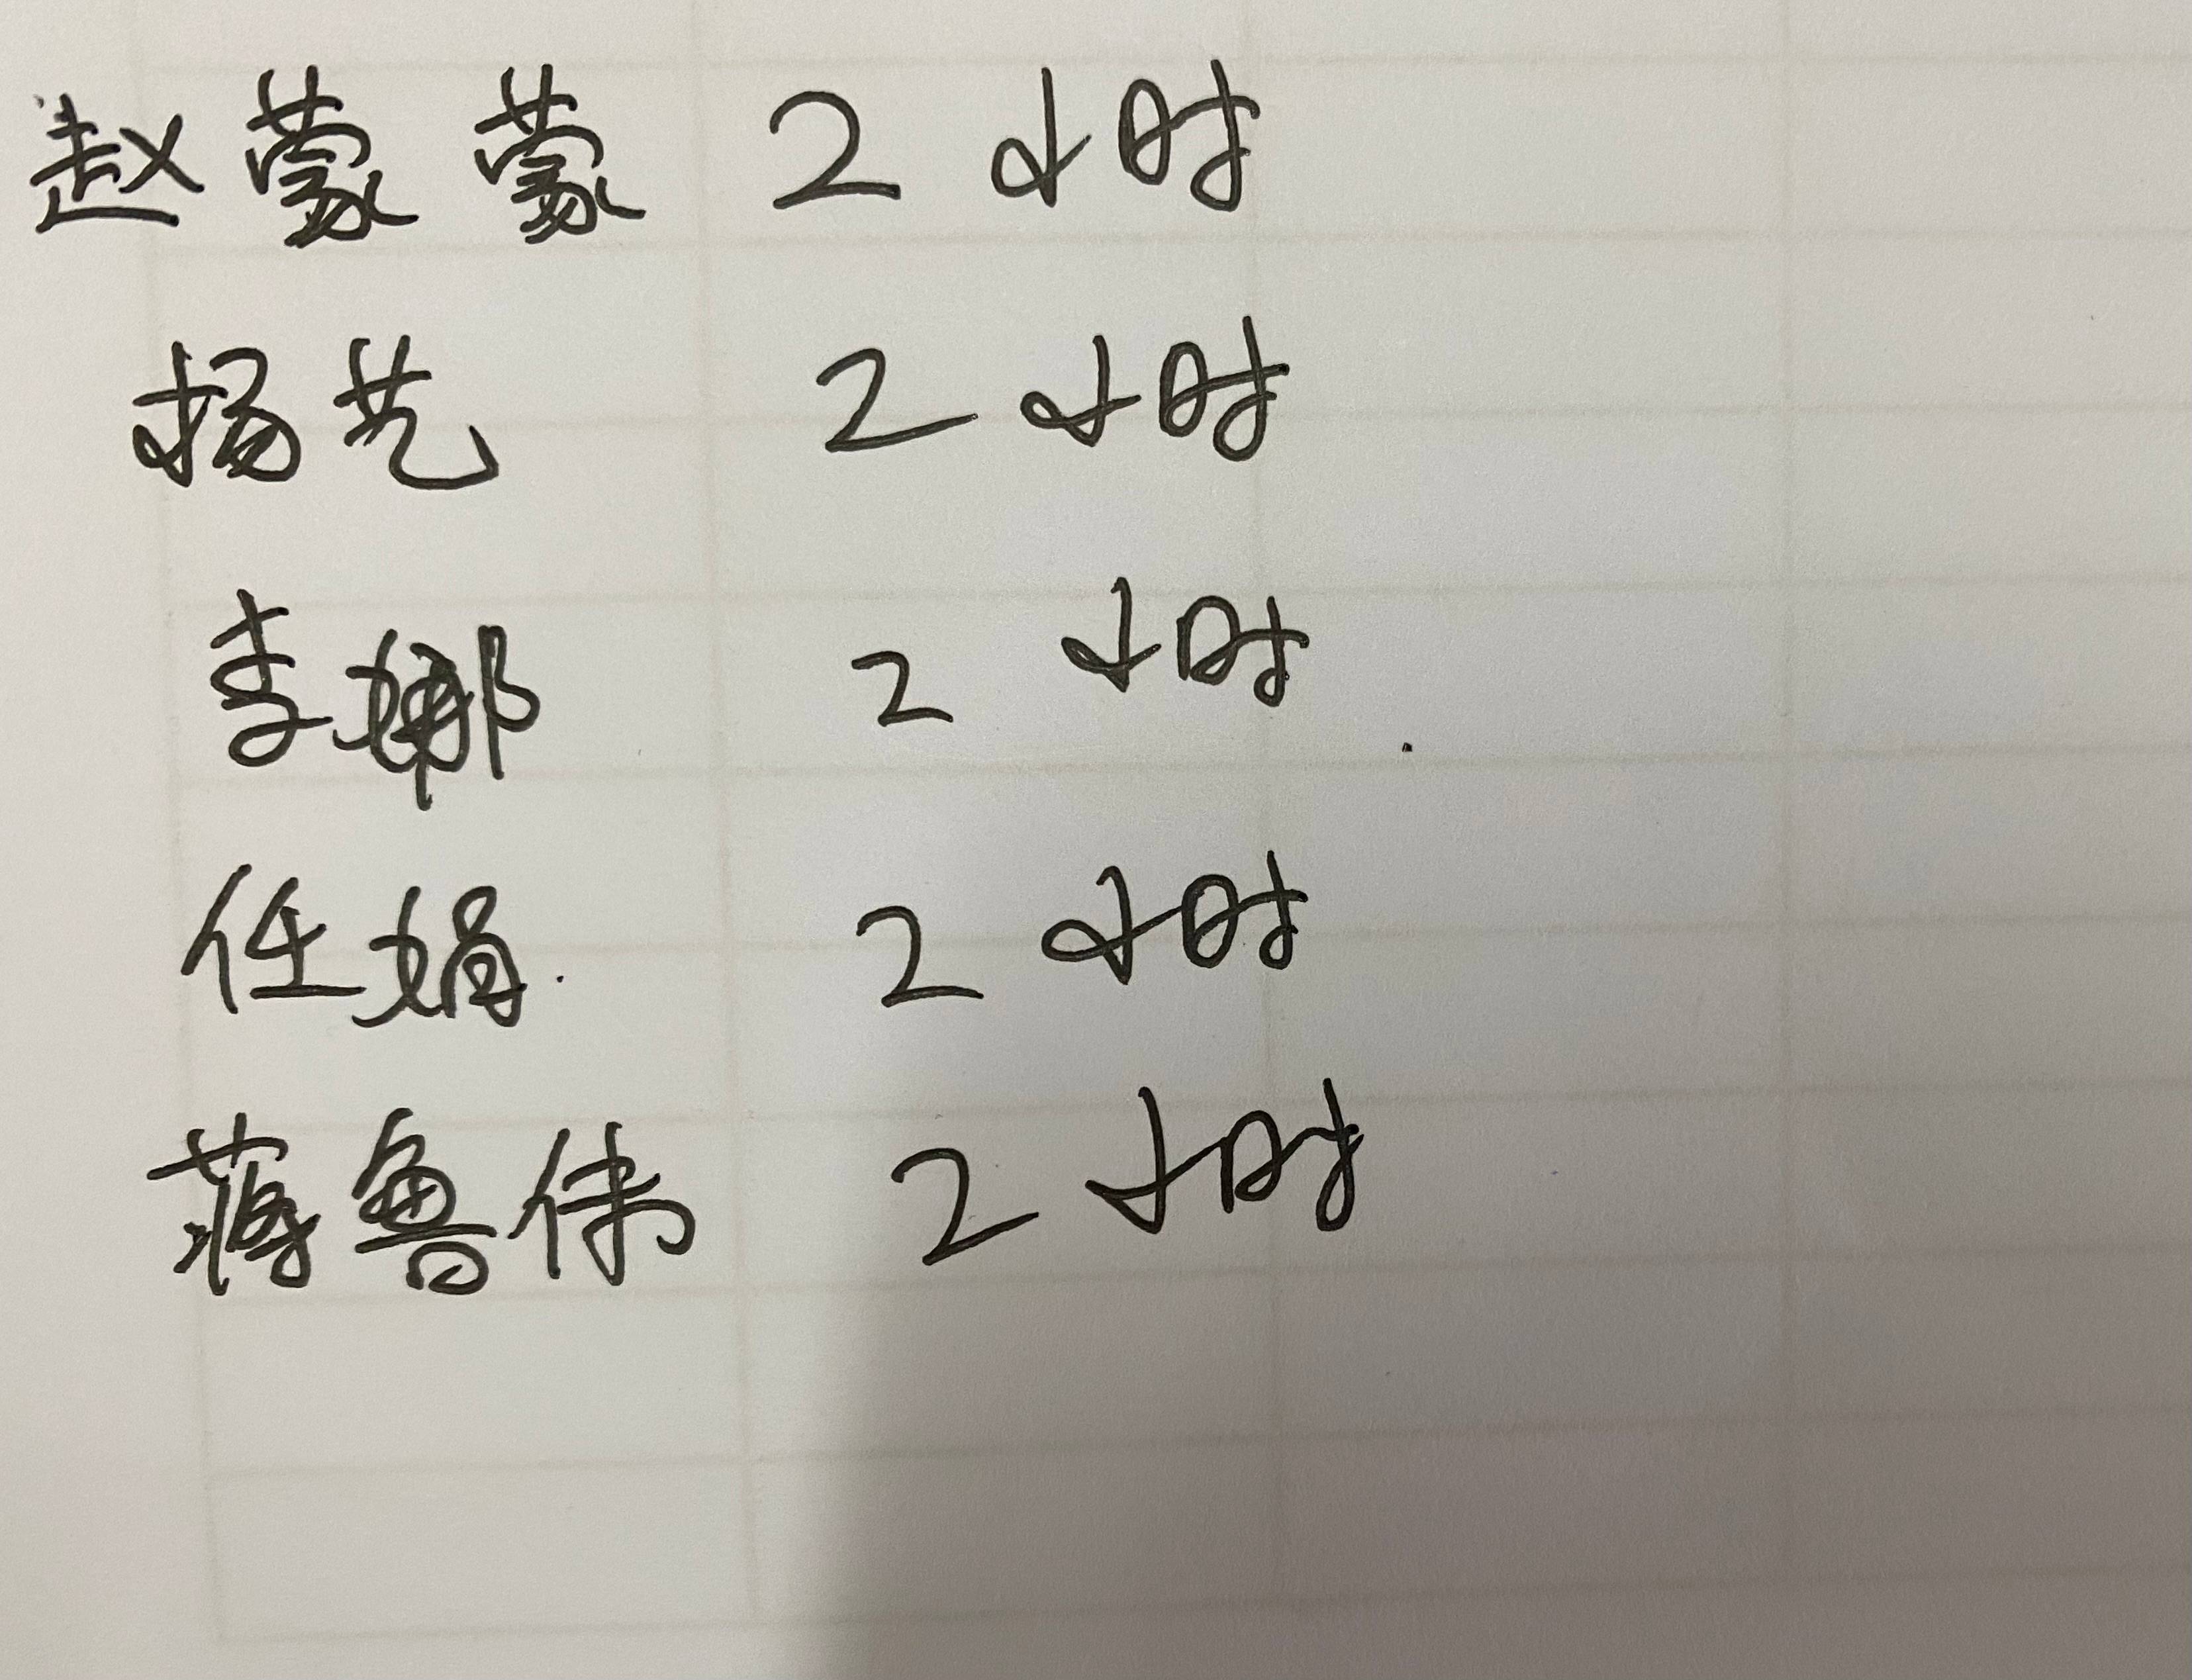 赵蒙蒙 2小时
杨艺 2小时
李娜 2小时
任娟 2小时
蒋鲁伟 2小时